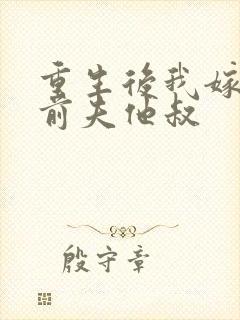 重生後我嫁
前夫他叔
殷守章